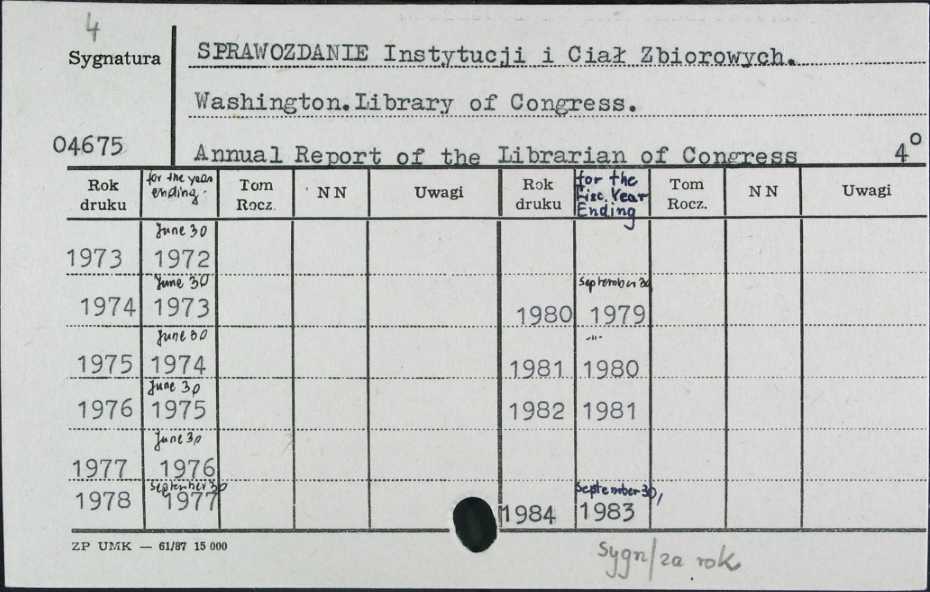 4
Sygnatura
SPRAWOZDANIE Instytucji i Ciał Zbiorowych.
Washington.Library of Congress.
04675
Annual Report of the Librarian of Congress 4°
Rok druku for the year ending. Tom Rocz. NN Uwagi Rok druku for the Fisc. Year Ending Tom Rocz. NN Uwagi
June 30
1973 1972
June 30 September 30
1974 1973 1980 1979
June 30 -"-
1975 1974 1981 1980
June 30
1976 1975 1982 1981
June 30
1977 1976
September 30 September 30,
1978 1977 1984 1983
ZP UMK — 61/87 15 000
Sygn/za rok